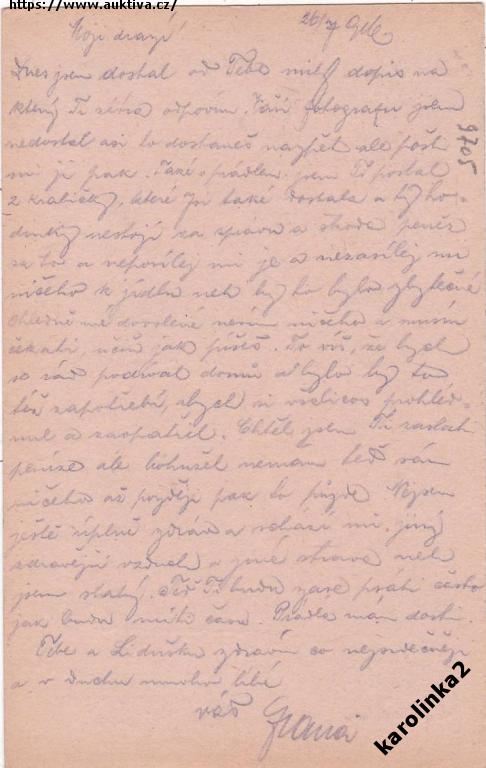 https://www.auktiva.cz/
26/7
Moji drazí
Dnes jsem dostal od Tebe milý dopis na
který Ti zéra odpovím. Vaši fotografii jsem
nedostal asi to dostaneš nazpět ale pošli
mi ji pak. Také prádlem jsem Ti poslal
2 krabičky, které jsi také dostala a ty ho-
dinky nestojí za správu a škoda peněz
za to a neposílej mi je a nezasílej mi
ničeho k jídlu neb by to bylo zbytečné
Ohledně mé dovolené nevím ničeho a musím
čekati, učiň jak píšeš. To víš, že bych
se rád podíval domů a bylo by to
též zapotřebí, abych si všelicos prohléd-
nul a zaopatřil. Chtěl jsem Ti zaslati
peníze ale bohužel nemám teď sám
ničeho až později pak to půjde. Nejsem
ještě úplně zdráv a schází mi jiný
zdravější vzduch a jiná strava neb
jsem slabý. Teď Ti budu zase psáti často
jak budu míti čas. Prádla mám dosti.
Tebe a Lidušku zdravím co nejsrdečněji
a v duchu mnoho líbá
váš
9705
karolinka2